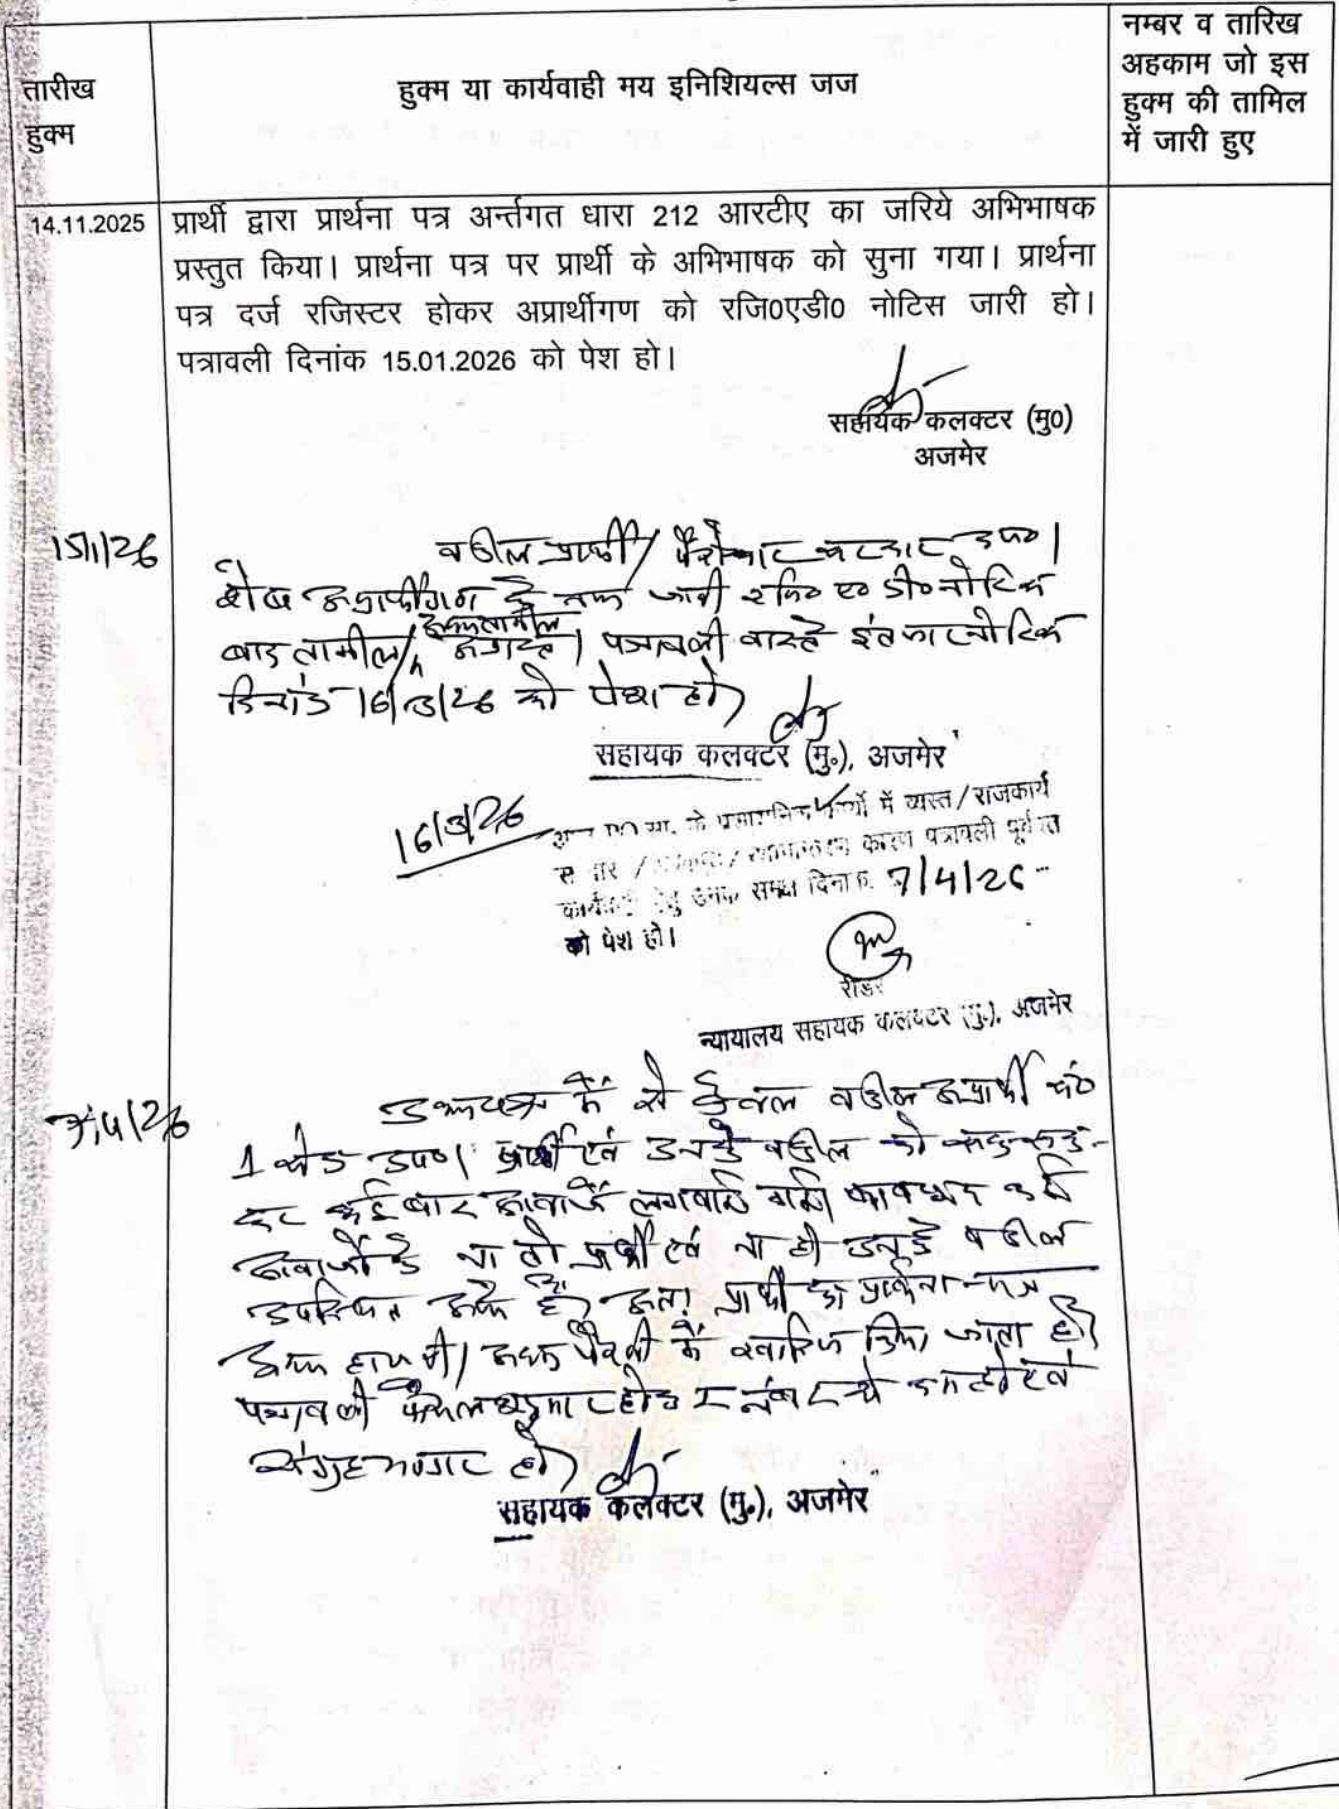 तारीख
हुक्म
हुक्म या कार्यवाही मय इनिशियल्स जज
नम्बर व तारिख
अहकाम जो इस
हुक्म की तामिल
में जारी हुए
14.11.2025
प्रार्थी द्वारा प्रार्थना पत्र अर्न्तगत धारा 212 आरटीए का जरिये अभिभाषक
प्रस्तुत किया। प्रार्थना पत्र पर प्रार्थी के अभिभाषक को सुना गया। प्रार्थना
पत्र दर्ज रजिस्टर होकर अप्रार्थीगण को रजि0एडी0 नोटिस जारी हो।
पत्रावली दिनांक 15.01.2026 को पेश हो।
सहायक कलक्टर (मु0)
अजमेर
15/1/26
वकील प्रार्थी/ पैरोकार सरकार उप०।
शेष अप्रार्थीगण के नाम जारी रजि० ए० डी० नोटिस
बाद तामील/ अदमतामील अप्राप्त। पत्रावली वास्ते इंतजार नोटिस
दिनांक 16/3/26 को पेश हो।
सहायक कलक्टर (मु.), अजमेर
16/3/26
के प्रशासनिक कार्यों में व्यस्त/राजकार्य
कारण पत्रावली पूर्वत
समक्ष दिनांक 7/4/26
को पेश हो।
रीडर
न्यायालय सहायक कलक्टर (मु.), अजमेर
7/4/26
उभयपक्ष में से केवल वकील अप्रार्थी सं०
1 उप०। प्रार्थी एवं उनके वकील को रूक-रूक-
कर कई बार आवाजें लगवाई गई। बावजूद
आवाजों के ना तो प्रार्थी एवं ना ही उनके वकील
उपस्थित आये है। अतः प्रार्थी का प्रार्थना-पत्र
अदम हाजरी/ अदम पैरवी में खारिज किया जाता है।
पत्रावली फैसल शुमार होकर नंबर से कम हो एवं
संग्रहागार हो।
सहायक कलक्टर (मु.), अजमेर